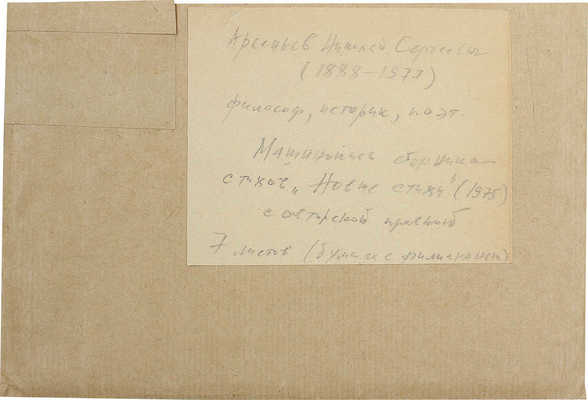 Арсеньев Николай Сергеевич
(1888–1977)
философ, историк, поэт.
Машинопись сборника
стихов „Новые стихи" (1975)
с авторской правкой
7 листов (бумага с филигранью)